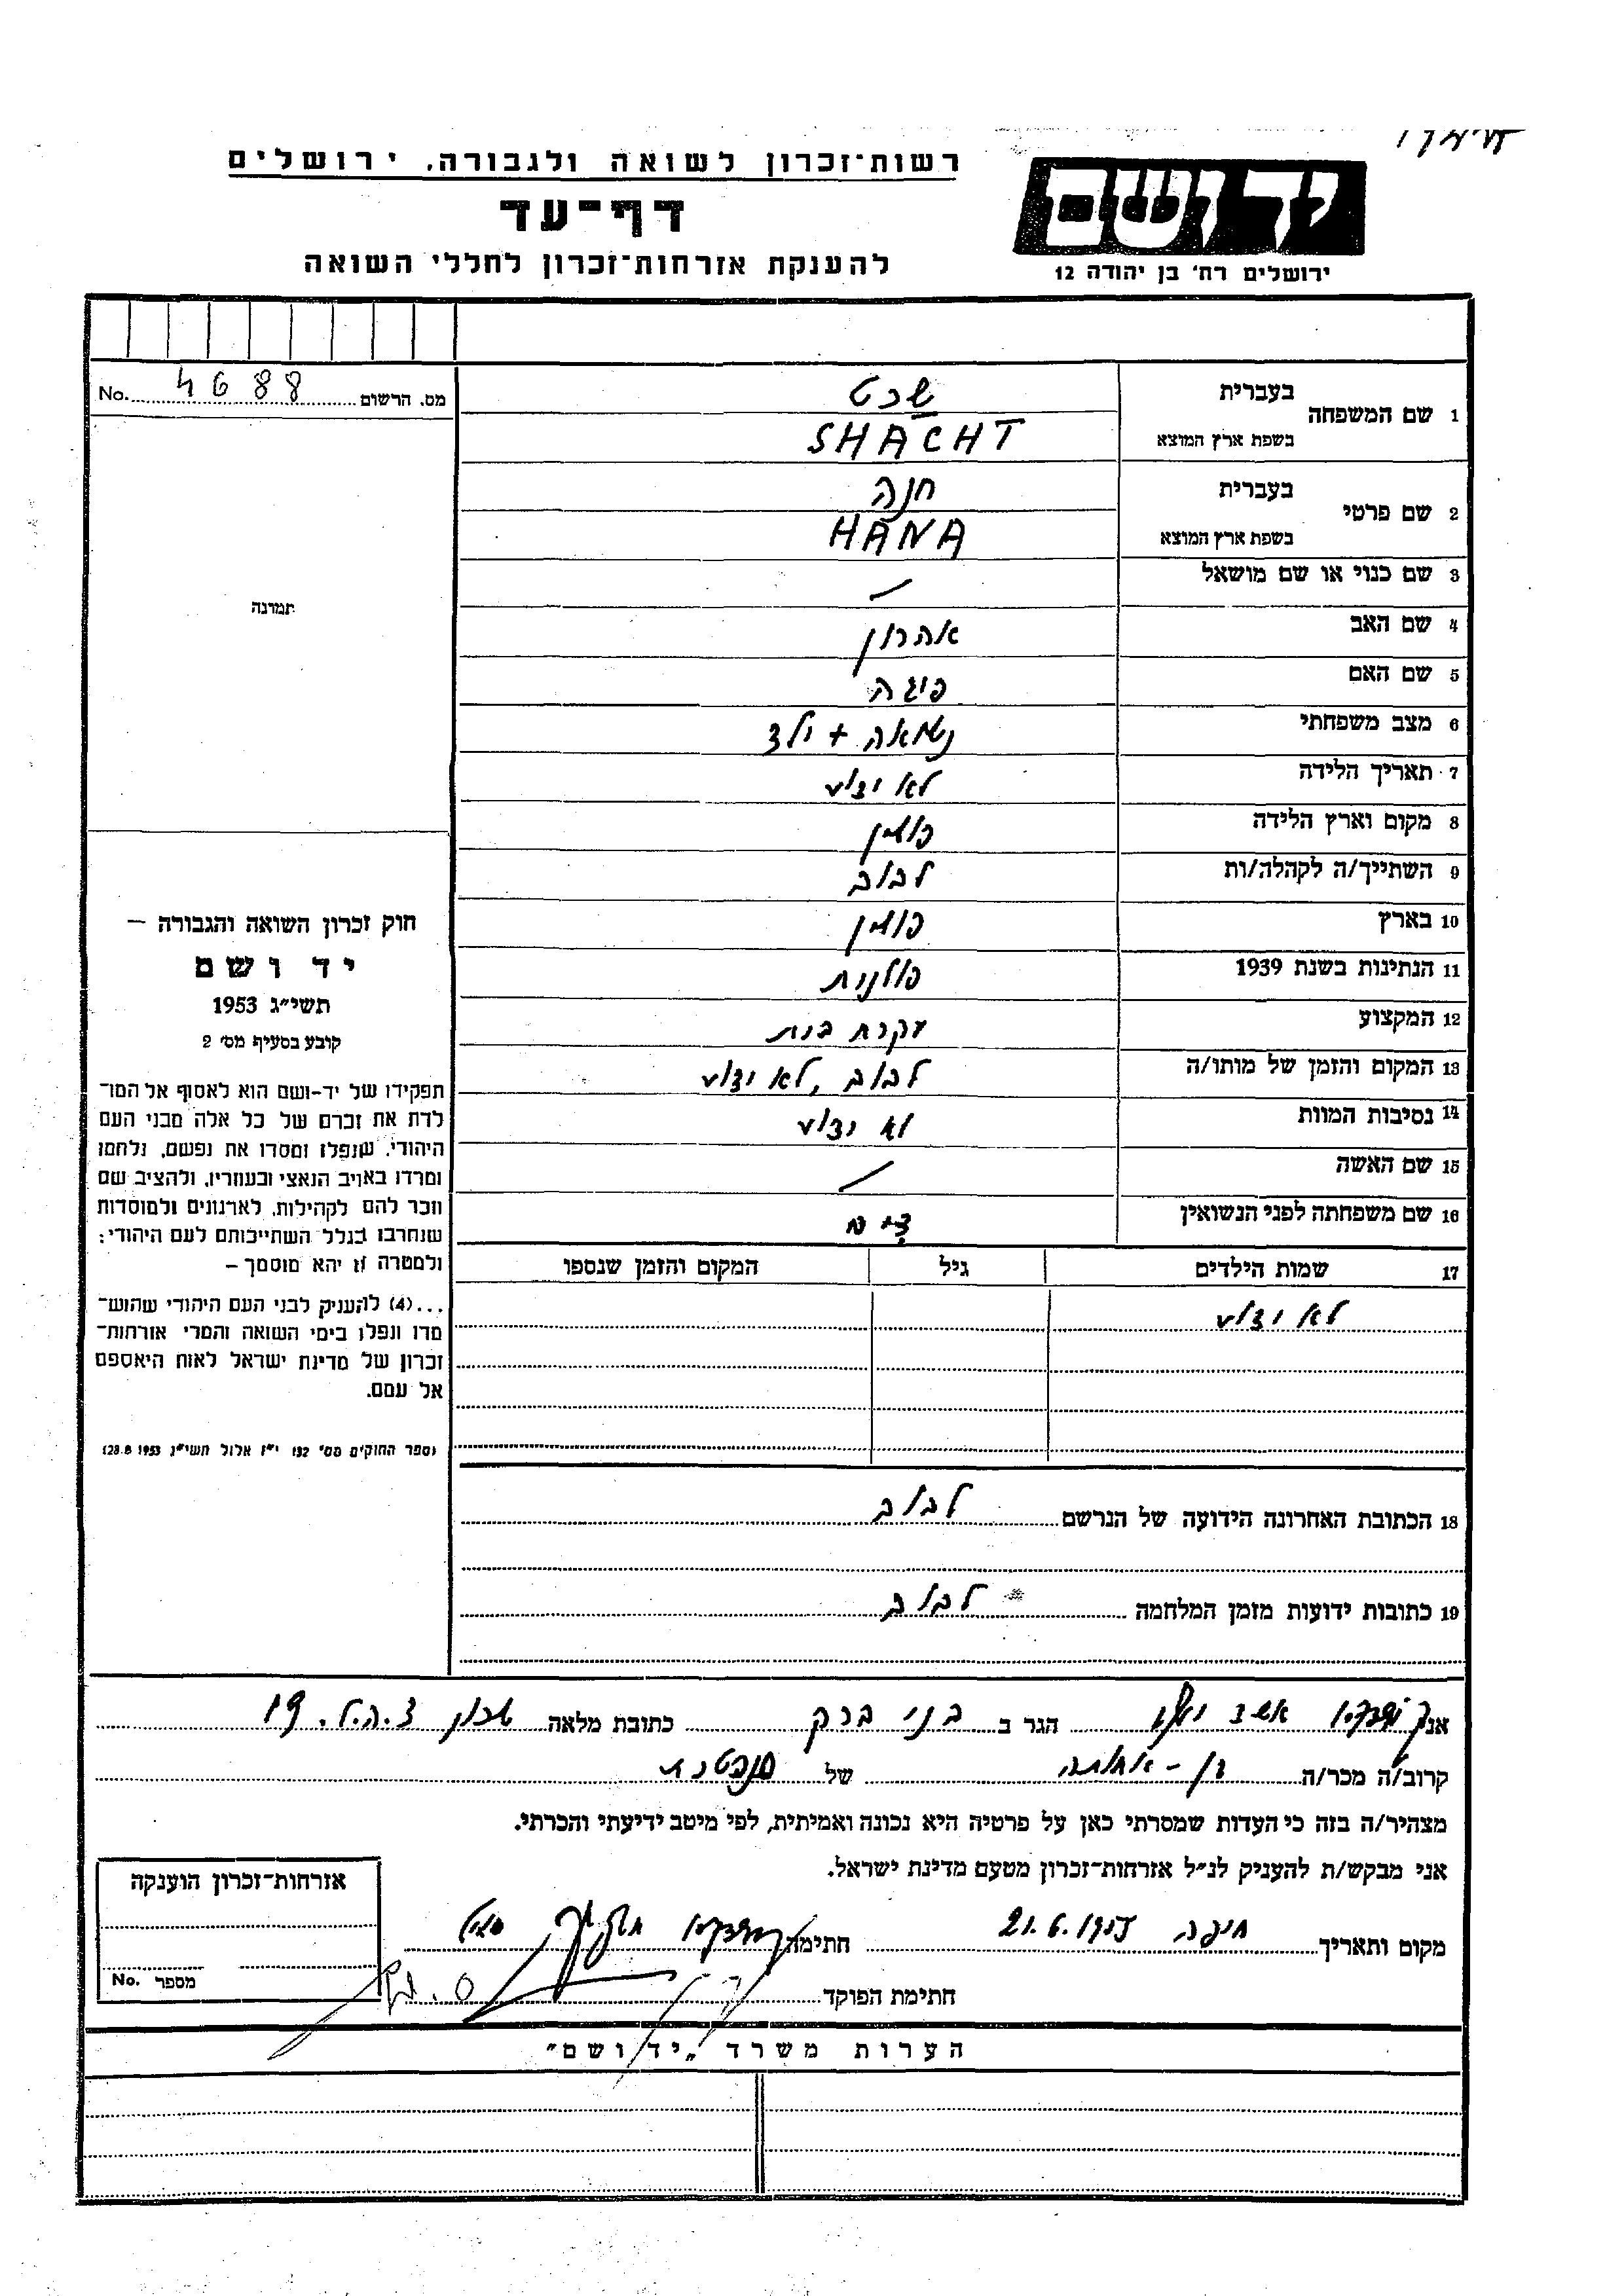 רשות־זכרון לשואה ולגבורה. ירושלים
דף־עד
להענקת אזרחות־זכרון לחללי השואה
יד ושם
ירושלים רח' בן יהודה 12
מס. הרשום 4688 No.
1 שם המשפחה
בעברית שכט
בשפת ארץ המוצא SHACHT
2 שם פרטי
בעברית חנה
בשפת ארץ המוצא HANA
3 שם כנוי או שם מושאל /
4 שם האב אהרון
5 שם האם פיגה
6 מצב משפחתי נשואה + ילד
7 תאריך הלידה לא ידוע
8 מקום וארץ הלידה פולין
9 השתייך/ה לקהלה/ות לבוב
10 בארץ פולין
11 הנתינות בשנת 1939 פולנית
12 המקצוע עקרת בית
13 המקום והזמן של מותו/ה לבוב, לא ידוע
14 נסיבות המוות לא ידוע
15 שם האשה /
16 שם משפחתה לפני הנשואין
17 שמות הילדים גיל המקום והזמן שנספו
לא ידוע
18 הכתובת האחרונה הידועה של הנרשם לבוב
19 כתובות ידועות מזמן המלחמה לבוב
תמונה
חוק זכרון השואה והגבורה –
יד ושם
תשי"ג 1953
קובע בסעיף מס' 2
תפקידו של יד-ושם הוא לאסוף אל המו־
לדת את זכרם של כל אלה מבני העם
היהודי, שנפלו ומסרו את נפשם, נלחמו
ומרדו באויב הנאצי ובעוזריו, ולהציב שם
וזכר להם לקהילות, לארגונים ולמוסדות
שנחרבו בגלל השתייכותם לעם היהודי;
ולמטרה זו יהא מוסמך –
...(4) להעניק לבני העם היהודי שהוש־
מדו ונפלו בימי השואה והמרי אזרחות־
זכרון של מדינת ישראל לאות היאספם
אל עמם.
(ספר החוקים מס' 132 י"ז אלול תשי"ג 28.8.1953)
אני הגר ב בני ברק כתובת מלאה שכון צ.ה.ל. 19
קרוב/ה מכר/ה בן-אחותה של הנפטרת
מצהיר/ה בזה כי העדות שמסרתי כאן על פרטיה היא נכונה ואמיתית, לפי מיטב ידיעתי והכרתי.
אני מבקש/ת להעניק לנ"ל אזרחות־זכרון מטעם מדינת ישראל.
מקום ותאריך חיפה חתימה
חתימת הפוקד
אזרחות־זכרון הוענקה
מספר No.
הערות משרד „יד ושם"